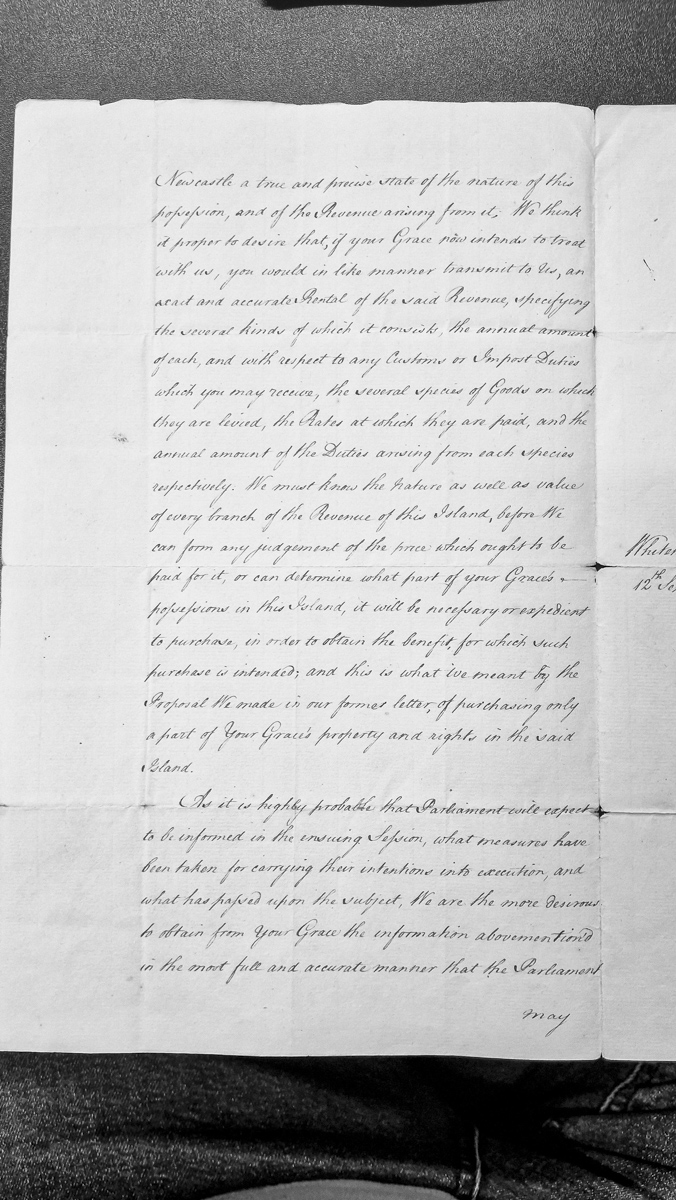 Newcastle a true and precise state of the nature of this
poſseſsion, and of the Revenue arising from it; We think
it proper to desire that, if your Grace now intends to treat
with us, you would in like manner transmit to Us, an
exact and accurate Rental of the said Revenue, specifying
the several kinds of which it consists, the annual amount
of each, and with respect to any Customs or Impost Duties
which you may receive, the several species of Goods on which
they are levied, the Rates at which they are paid, and the
annual amount of the Duties arising from each species
respectively. We must know the nature as well as value
of every branch of the Revenue of this Island, before We
can form any judgement of the price which ought to be
paid for it, or can determine what part of your Grace's
poſseſsions in this Island, it will be neceſsary or expedient
to purchase, in order to obtain the benefit, for which such
purchase is intended; and this is what we meant by the
Proposal We made in our former letter, of purchasing only
a part of Your Grace's property and rights in the said
Island.
As it is highly probable that Parliament will expect
to be informed in the ensuing Seſsion, what measures have
been taken for carrying their intentions into execution, and
what has paſsed upon the subject, We are the more desirous
to obtain from Your Grace the information abovemention'd
in the most full and accurate manner that the Parliament
may
12th